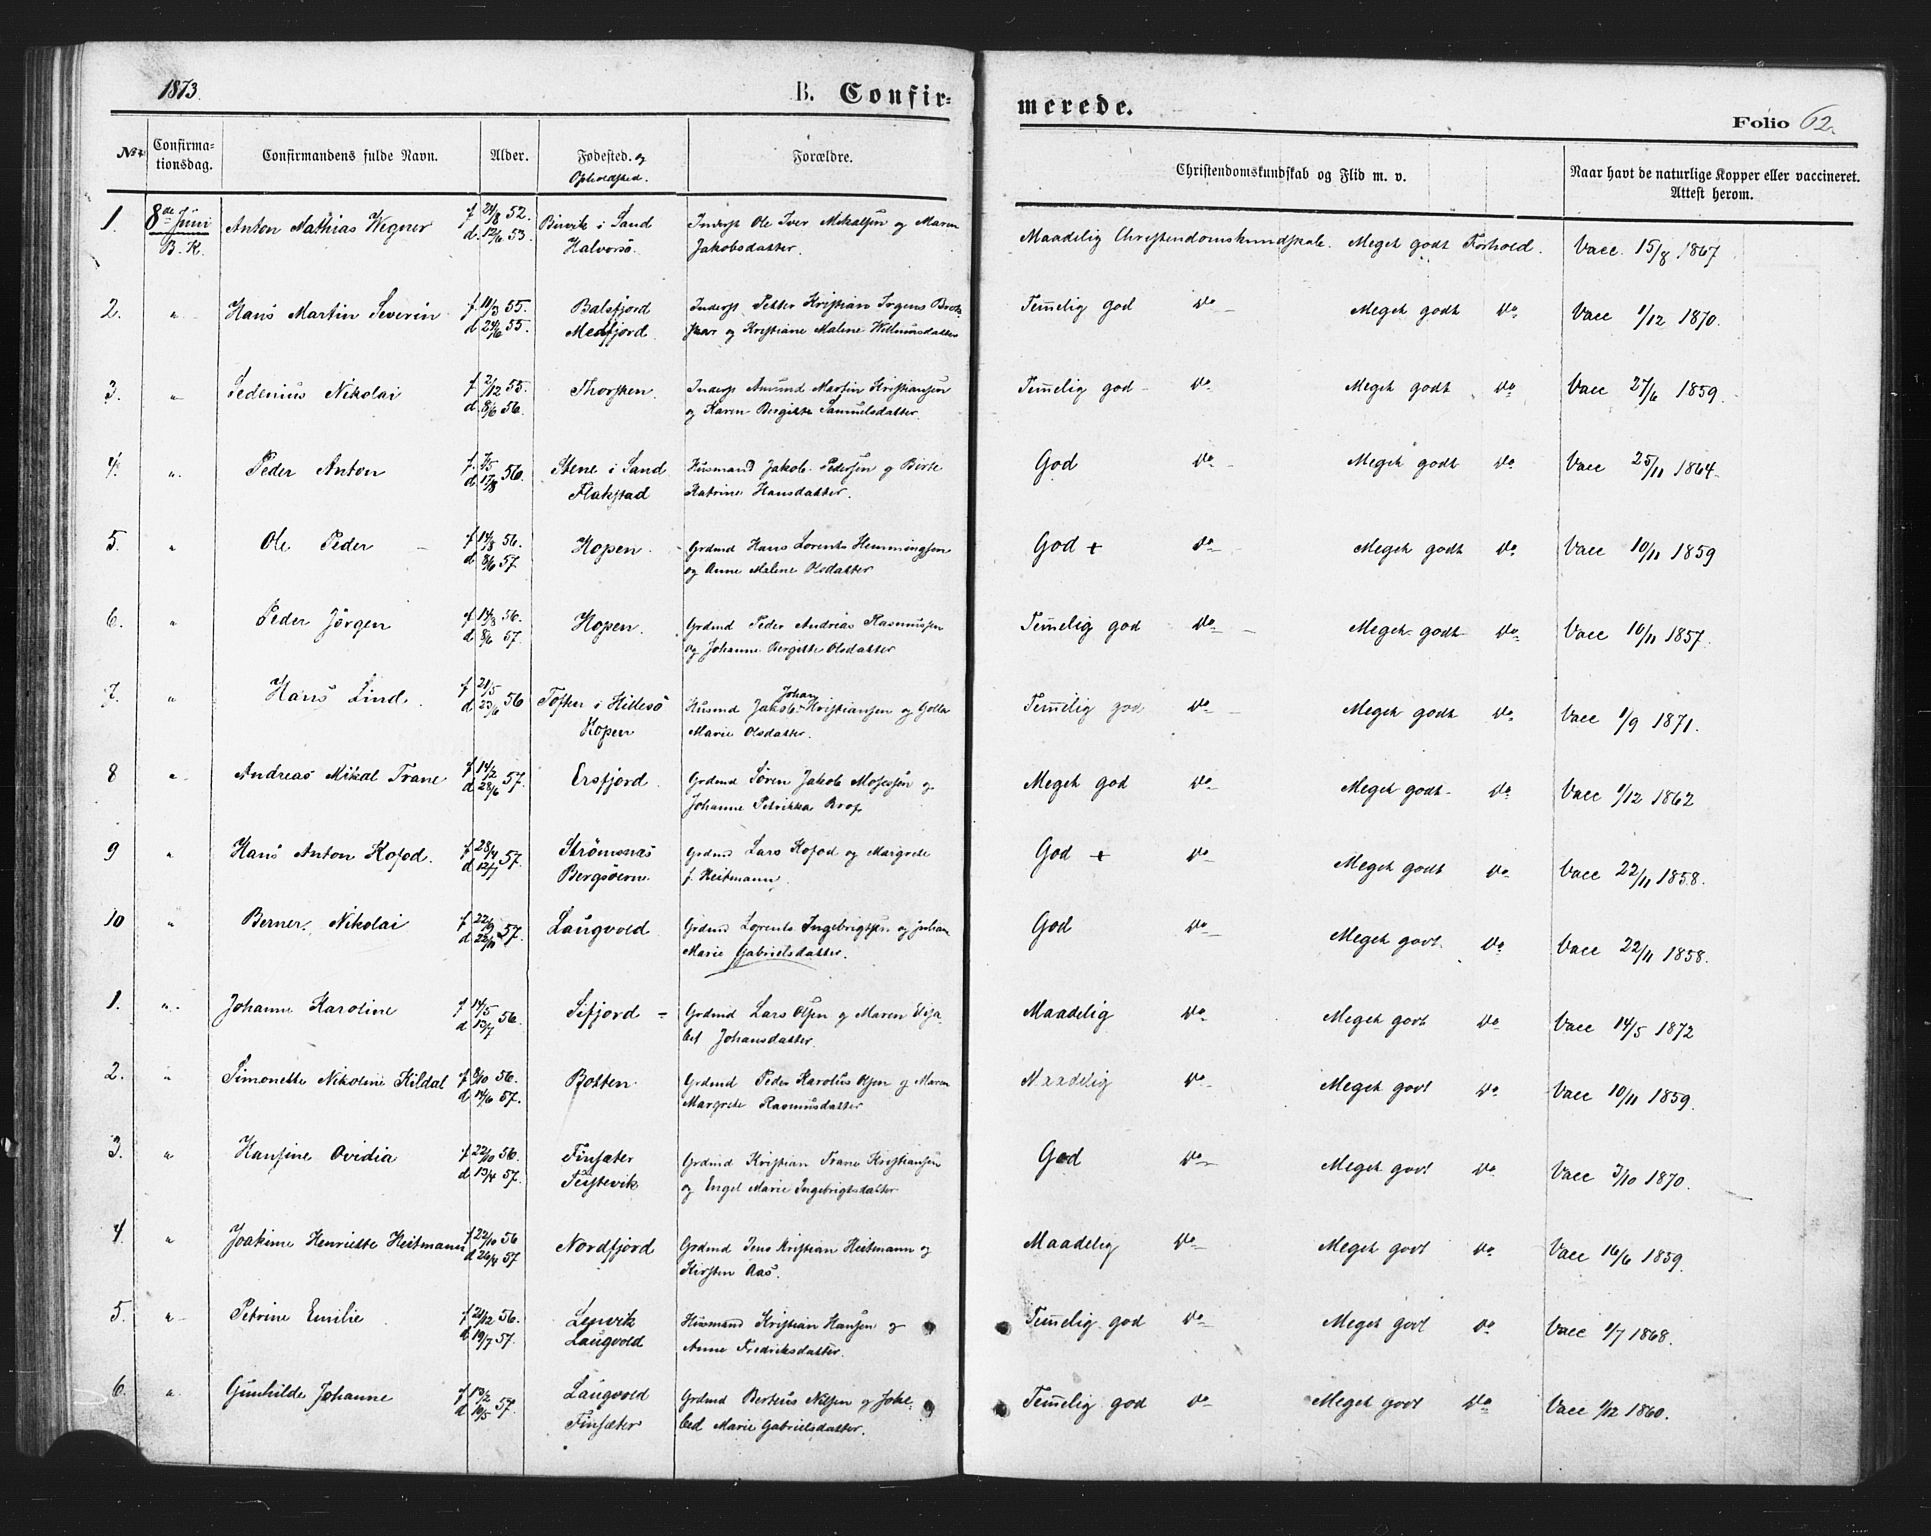 1873.
B. Confir-
merede.
Folio 62.
No.
Confirma-
tionsdag.
Confirmandens fulde Navn.
Alder.
Fødested. og
Opholdssted.
Forældre.
Christendomskundskab og Flid m. v.
Naar havt de naturlige Kopper eller vaccineret.
Attest herom.
1. 8de Juni Anton Mathias Wegner f 24/8 52. i Sand Inderst Ole Iver Mikalsen og Maren
B. K. d. 12/6 53. Halvorsö. Jakobsdatter.
Maadelig Christendomskundskab. Meget godt Forhold. Vacc. 15/8 1867
2. " Hans Martin Severin f. 11/3 55. Balsfjord Inderst Petter Kristian Irgens
d 24/6 55. Medfjord. og Kristiane Malene Willumsdatter
Temelig god do Meget godt do Vacc 1/12 1870.
3. " Sedenius Nikolai f 2/12 55. Thorsken. Inderst Amund Martin Kristiansen
d. 8/6 56. og Karen Bergitte Samuelsdatter.
Temelig god do Meget godt do Vacc 27/6 1859.
4. " Peder Anton f. 7/5 56. Stene i Sand Husmand Jakob Pedersen g Birte
d. 17/8 Flakstad Katrine Hansdatter.
God do Meget godt do Vacc 25/11 1864.
5. " Ole Peder f 14/8 56. Hopen. Grdmd Hans Lorents Hemmingsen
d. 8/6 57. og Anne Malene Olsdatter
God + do Meget godt do Vacc 10/11 1859
6. " Peder Jörgen f 14/8 56. Hopen. Grdmd Peder Andreas Rasmussen
d 8/6 57. og Johanne Bergitte Olsdatter
Temelig god do Meget godt do Vacc 10/11 1857.
7. " Hans Lind. f 21/5 56 Toften i Hillesö Husmd Jakob Johan Kristiansen og Golla
d 23/6 Hopen Marie Olsdatter.
Temelig god do Meget godt do Vacc 1/9 1871.
8 " Andreas Mikal Trane f 14/2 57. Ersfjord. Grdmd Sören Jakob Mosesen og
d 28/6 Johanne Petrikka
Meget god do Meget godt do Vacc 1/12 1862
9 " Hans Anton Kofod. f 28/4 57. Strömsnæs Grdmd Lars Kofod og Margrete
d 12/7 Bergsöiern. f. Heitmann.
God + do Meget godt do Vacc 22/11 1858.
10 " Berner Nikolai f 22/9 57. Laugvold Grdmd Lorents Ingebrigtsen og
d 22/11 Marie Gabrielsdatter.
God do Meget godt do Vacc 22/11 1858.
1. " Johanne Karoline f 14/5 56. Sifjord Grdmd Lars Olsen og Maren Elisa-
d 13/7 bet Johansdatter.
Maadelig do Meget godt do Vacc 14/5 1872
2. " Simonette Nikoline Kildal f 8/10 56. Botten. Grdmd Peder Karolus Olsen og Maren
d. 14/6 57. Margrete Rasmusdatter
Maadelig do Meget godt do Vacc 10/11 1859.
3. " Hansine Ovidia f 22/10 56. Finsæter Grdmd Kristian Trane Kristiansen
d 13/4 57. Teistevik og Engel Marie Ingebrigtsdatter
God do Meget godt do Vacc 3/10 1870.
4 " Joakime Henriette Heitmann f 22/10 56 Nordfjord Grdmd Jens Kristian Heitmann og
d 26/4 57 Kirsten Aas.
Maadelig do Meget godt do Vacc 16/6 1859.
5. " Petrine Emilie f 24/12 56. Lenvik Husmand Kristian Hansen og
d 19/7 57. Laugvold Anne Fredriksdatter.
Temelig god do Meget godt do Vacc 1/7 1868.
6. " Gunhilde Johanne f 13/2 57. Laugvold Grdmd Berteus Nilsen og
d 10/5 Finsæter Marie Gabrielsdatter.
Temelig god do Meget godt do Vacc 1/12 1860.